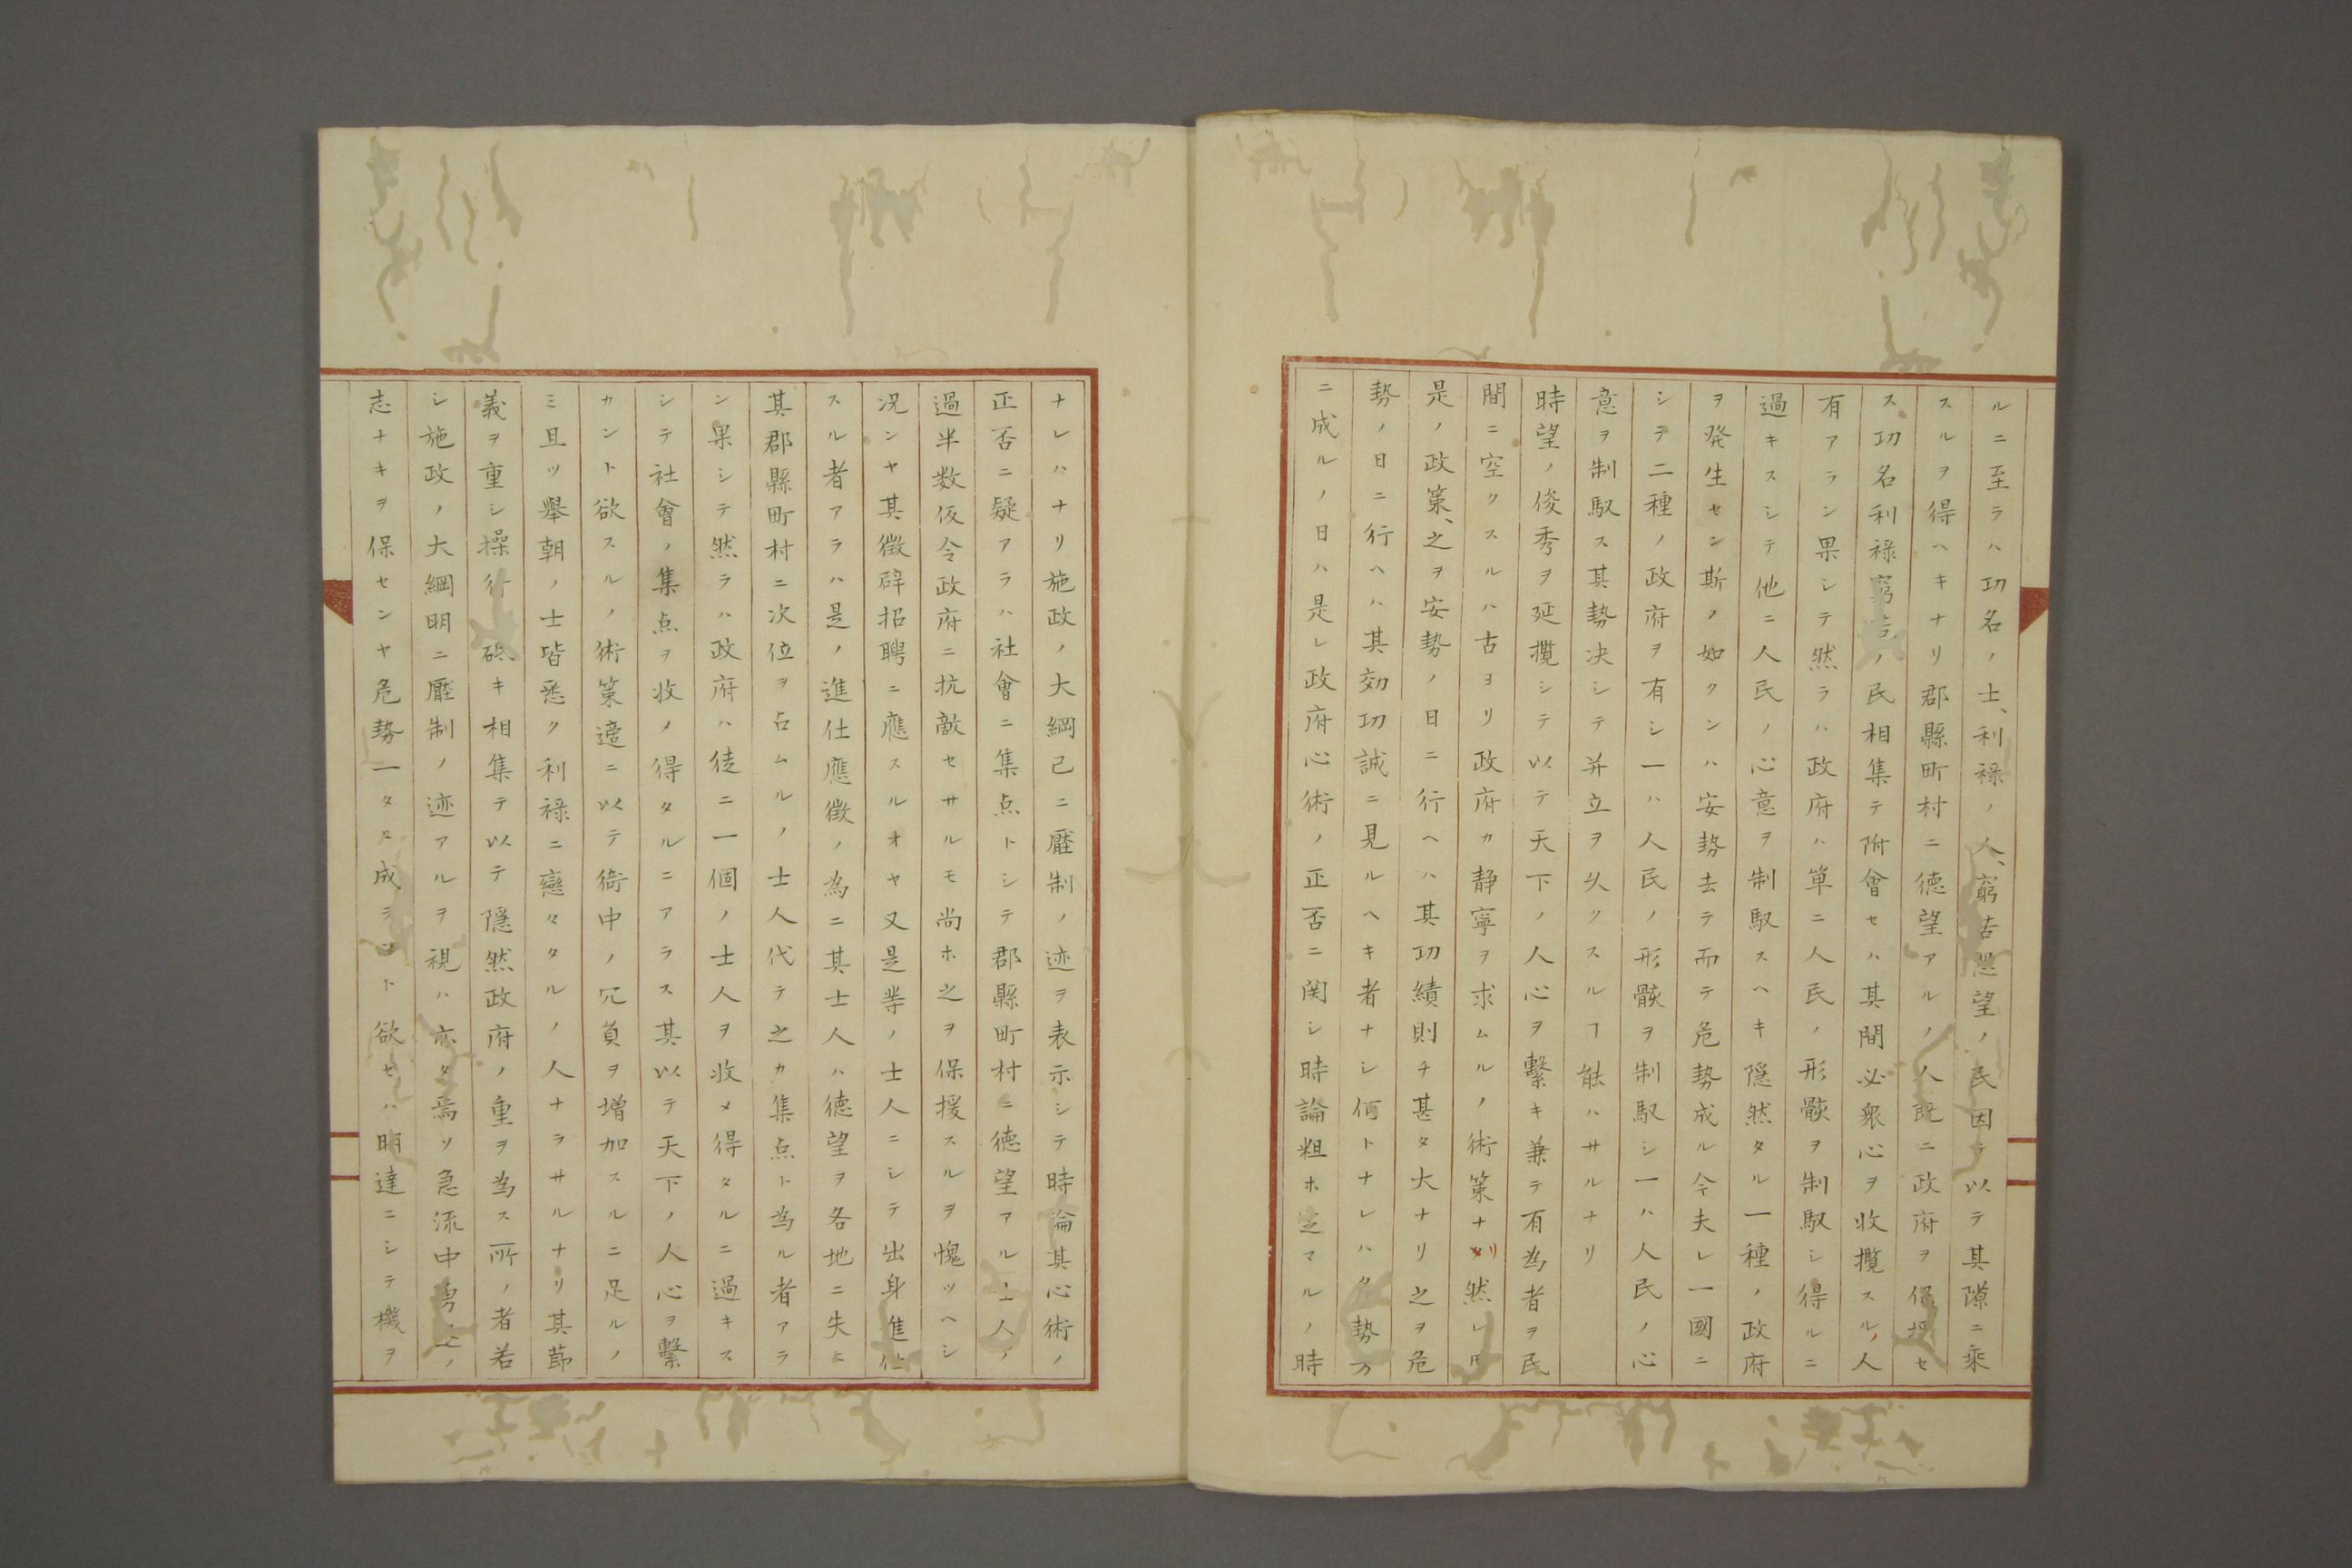 ルニ至ラハ功名ノ士、利禄ノ人、窮苦愚望ノ民因テ以テ其隙ニ乘
スルヲ得ヘキナリ郡縣町村ニ徳望アルノ人既ニ政府ヲ セ
ス功名利禄窮苦ノ民相集テ附會セハ其間必衆心ヲ收攬スルノ人
有アラン果シテ然ラハ政府ハ單ニ人民ノ形骸ヲ制馭シ得ルニ
過キスシテ他ニ人民ノ心意ヲ制馭スヘキ隠然タル一種ノ政府
ヲ発生セン斯ノ如クンハ安勢去テ而テ危勢成ル今夫レ一國ニ
シテ二種ノ政府ヲ有シ一ハ人民ノ形骸ヲ制馭シ一ハ人民ノ心
意ヲ制馭ス其勢决シテ并立ヲ久クスルヿ能ハサルナリ
時望ノ俊秀ヲ延攬シテ以テ天下ノ人心ヲ繋キ兼テ有為者ヲ民
間ニ空クスルハ古ヨリ政府カ静寧ヲ求ムルノ術策ナリ然レ𪜈
是ノ政策、之ヲ安勢ノ日ニ行ヘハ其功績則チ甚タ大ナリ之ヲ危
勢ノ日ニ行ヘハ其効功誠ニ見ルヘキ者ナシ何トナレハ危勢方
ニ成ルノ日ハ是レ政府心術ノ正否ニ関シ時論粗ホ定マルノ時
ナレハナリ施政ノ大綱已ニ壓制ノ迹ヲ表示シテ時論其心術ノ
正否ニ疑アラハ社會ニ集点トシテ郡縣町村ニ徳望アル士人ノ
過半数仮令政府ニ抗敵セサルモ尚ホ之ヲ保援スルヲ愧ツヘシ
况ンヤ其徴辟招聘ニ應スルオヤ又是等ノ士人ニシテ出身進仕
スル者アラハ是ノ進仕應徴ノ為ニ其士人ハ徳望ヲ各地ニ失ヒ
其郡縣町村ニ次位ヲ占ムルノ士人代テ之カ集点ト為ル者アラ
ン果シテ然ラハ政府ハ徒ニ一個ノ士人ヲ收メ得タルニ過キス
シテ社會ノ集点ヲ收メ得タルニアラス其以テ天下ノ人心ヲ繋
カント欲スルノ術策適ニ以テ衙中ノ冗負ヲ増加スルニ足ルノ
ミ且ツ擧朝ノ士皆悉ク利禄ニ戀々タルノ人ナラサルナリ其節
義ヲ重シ操行 キ相集テ以テ隠然政府ノ重ヲ為ス所ノ者若
シ施政ノ大綱明ニ壓制ノ迹アルヲ視ハ亦タ焉ソ急流中勇退ノ
志ナキヲ保センヤ危勢一タヒ成ラント欲セハ明達ニシテ機ヲ